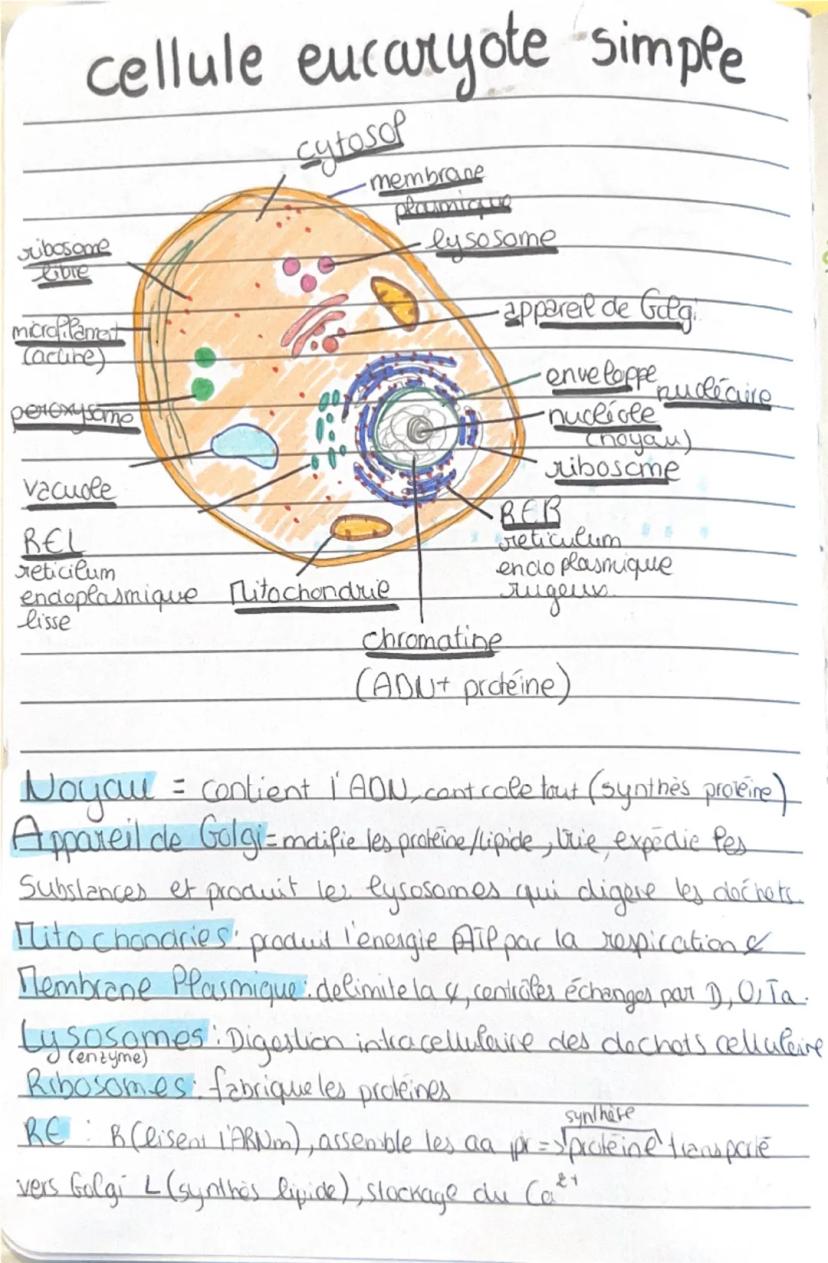 cellule eucaryote simple
cytosol
membrane
plasmique
lysosome
ribosome
libre
appareil de Golgi
microfilament
(actine)
enveloppe nucléaire
peroxysome
nucléole
(noyau)
ribosome
vacuole
REL
reticilum
endoplasmique
lisse
RER
reticulum
endoplasmique
rugeux
Mitochondrie
chromatine
(ADN+ protéine)
Noyau = contient l'ADN, controle tout (synthès protéine)
Appareil de Golgi = mdifie les protéine/lipide, trie, expédie les
Substances et produit les lysosomes qui digere les dechets.
Mitochondries: produit l'energie ATP par la respiration
Membrane Plasmique: delimite la , contrôles échanges par D, O, Ta.
Lysosomes: Digestion intracellulaire des dechets cellulaire
(enzyme)
Ribosomes: fabrique les protéines
synthèse
RE : R (lisent l'ARNm), assemble les aa pr => protéine transporté
vers Golgi L (synthès lipide), stockage du Ca²⁺